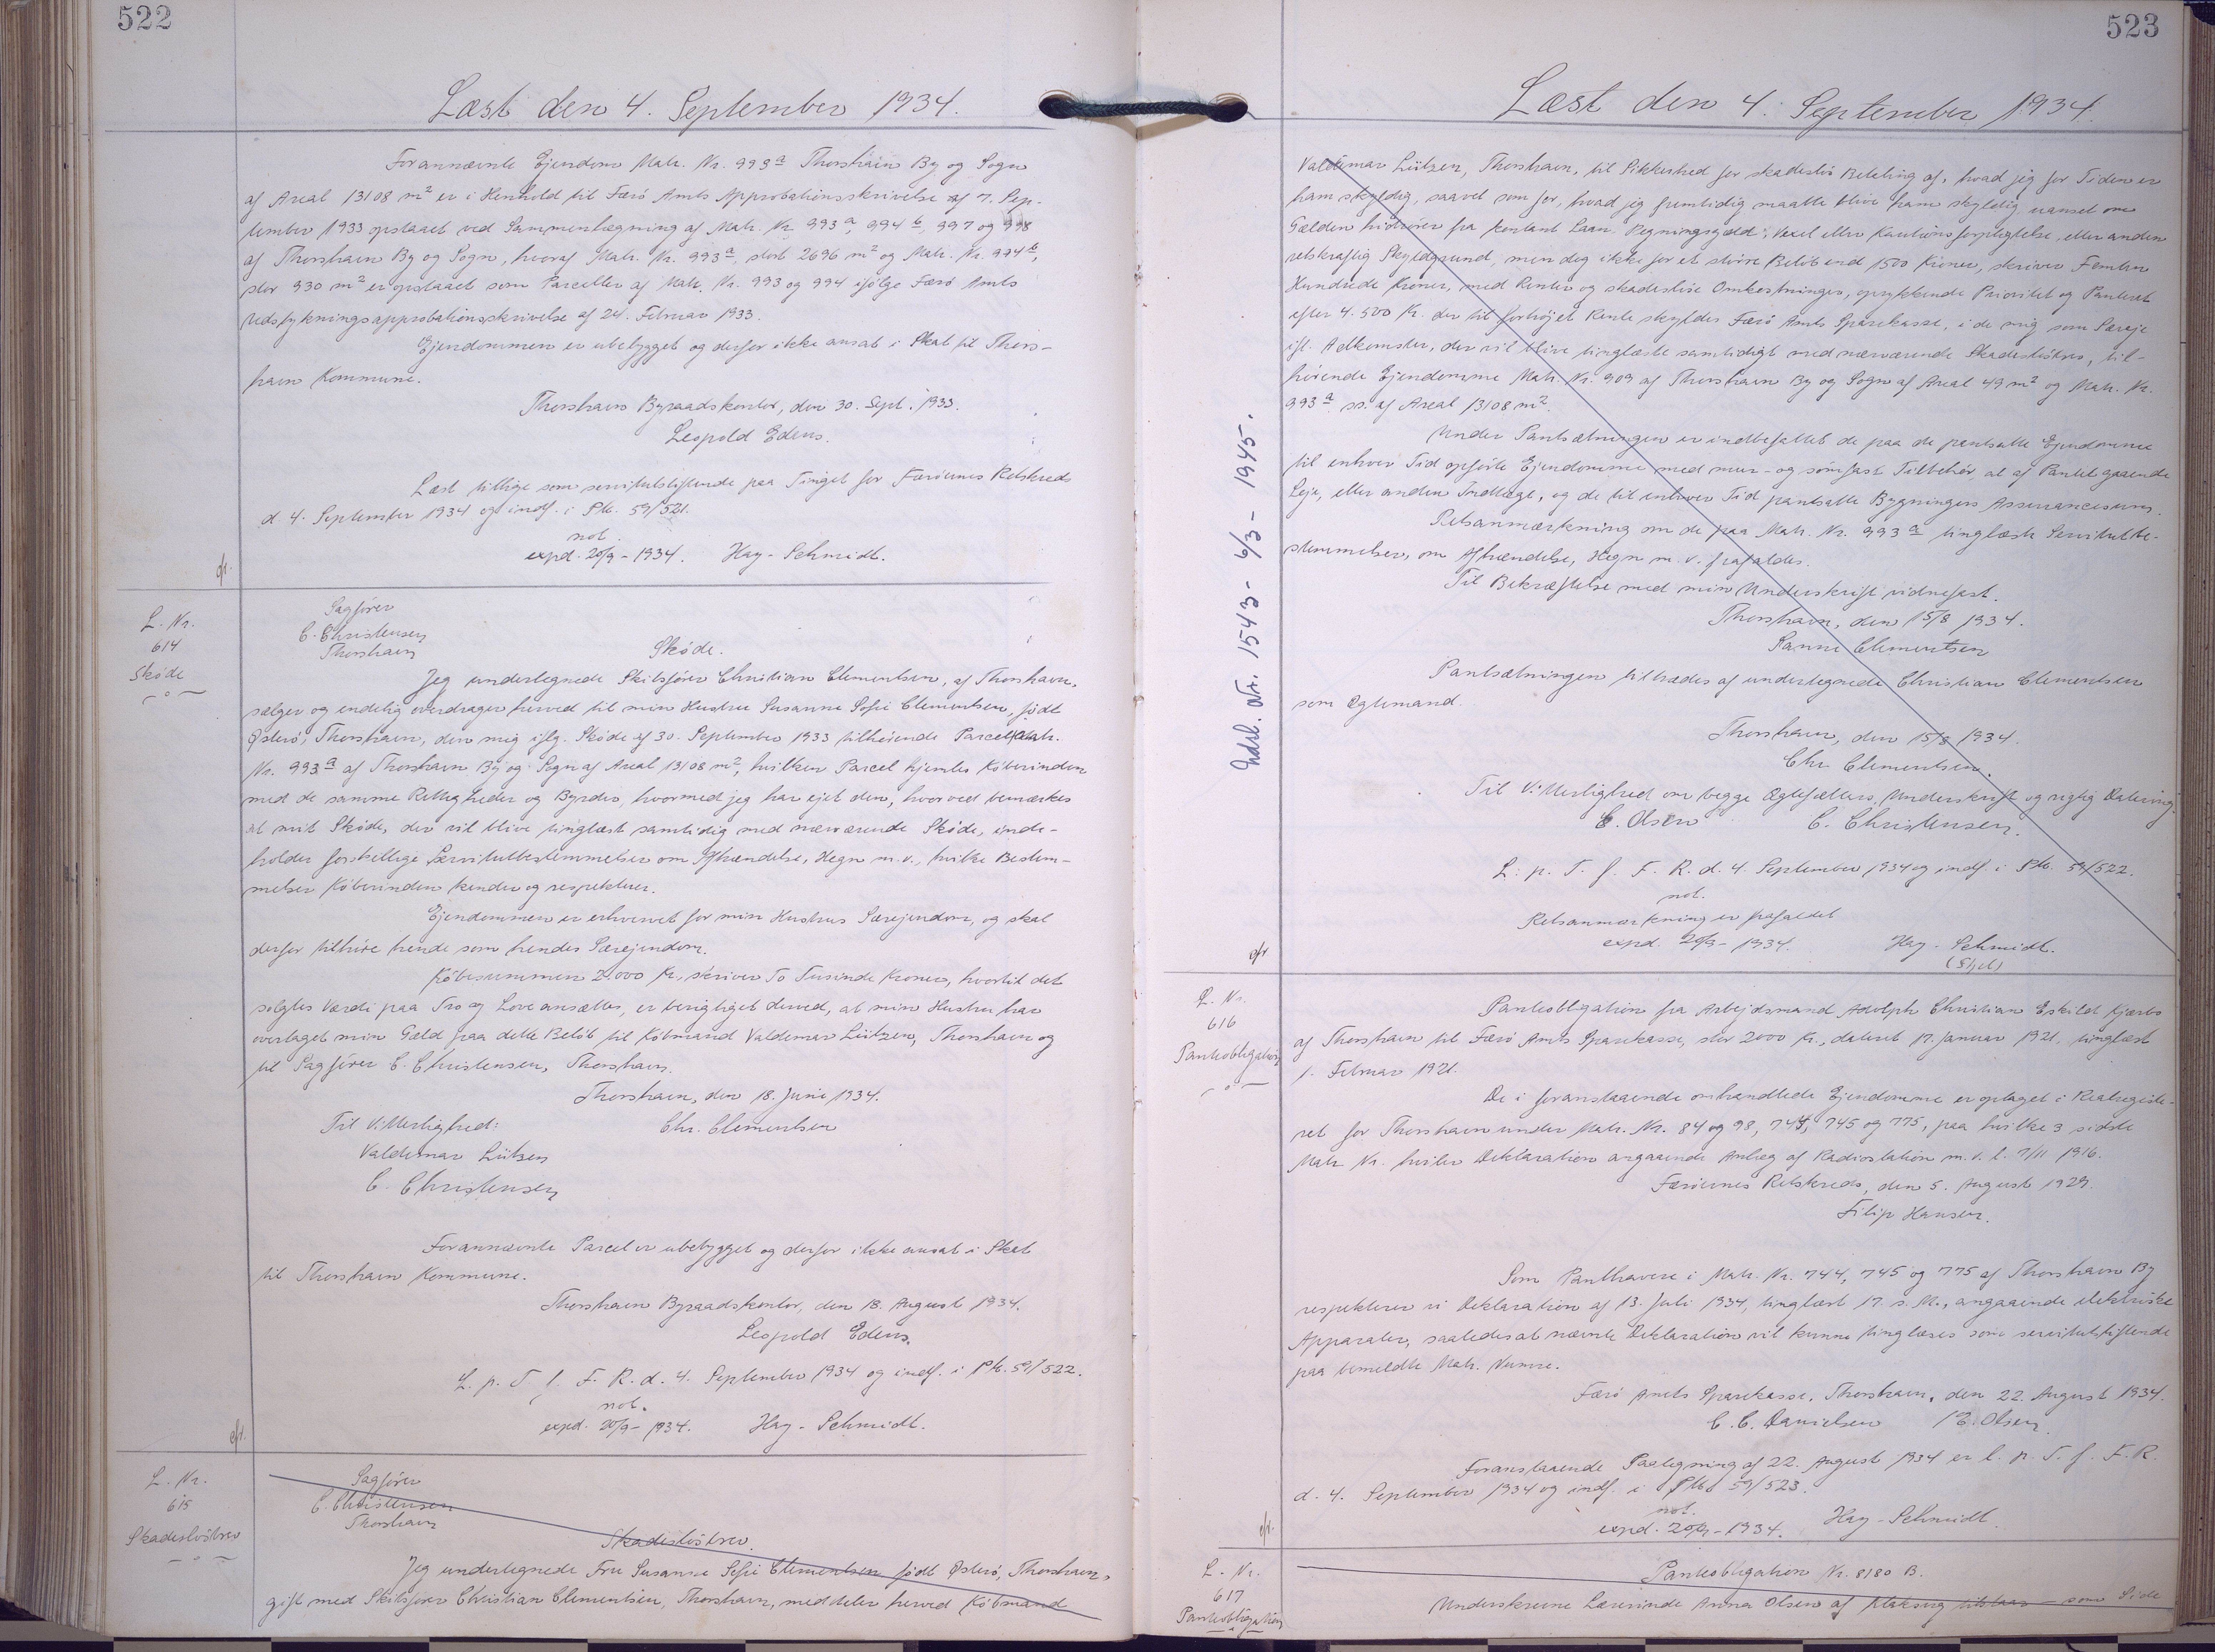 522
Læst den 4. September 1934.
Forannævnte Ejendom Matr. Nr. 993ª Thorshavn By og Sogn
af Areal 13108 m² er i Henhold til Færö Amts Approbationsskrivelse af 7. Sep-
tember 1933 opstaaet ved Sammenlægning af Matr. Nr. 993ª, 994b, 997 og 998
af Thorshavn By og Sogn, hvoraf Matr. Nr. 993ª, stort 2696 m² og Matr. Nr. 994b,
stor 930 m² er opstaaet som Parceller af Matr. Nr. 993 og 994 ifölge Færö Amts
Udstykningsapprobationsskrivelse af 24. Februar 1933.
Ejendommen er ubebygget og derfor ikke ansat i Skat til Thors-
havn Kommune.
Thorshavns Byraadskontor, den 30. Sept. 1933.
Leopold Edens.
Læst tillige som servitutstiftende paa Tinget for Færöernes Retskreds
d. 4. September 1934 og indf. i Ptb. 59/521.
not.
expd. 20/9-1934. Hay-Schmidt.
cfr.
L. Nr.
614
Sköde
Sagförer
C. Christensen
Thorshavn
Sköde.
Jeg undertegnede Skibsförer Christian Clementsen, af Thorshavn,
sælger og endelig overdrager herved til min Hustru Susanne Sofie Clementsen, födt
Österö, Thorshavn, den mig iflg. Sköde af 30. September 1933 tilhörende Parcel Matr.
Nr. 993ª af Thorshavn By og Sogn af Areal 13108 m², hvilken Parcel hjemles Köberinden
med de samme Rettigheder og Byrder, hvormed jeg har ejet den, hvorved bemærkes
at mit Sköde, der vil blive tinglæst samtidig med nærværende Sköde, inde-
holder forskellige Servitutbestemmelser om Afhændelse, Hegn m.v., hvilke Bestem-
melser Köberinden kender og respekterer.
Ejendommen er erhvervet for min Hustrus Særejendom, og skal
derfor tilhöre hende som hendes Særejendom.
Köbesummen 2.000 Kr., skriver To Tusinde Kroner, hvortil det
solgtes Værdi paa Tro og Love ansættes, er berigtiget derved, at min Hustru har
overtaget min Gæld paa dette Belöb til Köbmand Valdemar Lützen, Thorshavn og
til Sagförer C. Christensen, Thorshavn.
Thorshavn, den 18. Juni 1934.
Til Vitterlighed: Chr. Clementsen
Valdemar Lützen
C. Christensen
Forannævnte Parcel er ubebygget og derfor ikke ansat i Skat
til Thorshavn Kommune.
Thorshavn Byraadskontor, den 18. August 1934.
Leopold Edens.
L. p. T. f. F. R. d. 4. September 1934 og indf. i Ptb. 59/522.
not.
expd. 20/9-1934. Hay-Schmidt.
cfr.
L. Nr.
615
Skadeslösbrev
Sagförer
C. Christensen
Thorshavn
Skadeslösbrev.
Jeg undertegnede Fru Susanne Sofie Clementsen födt Österö, Thorshavn,
gift med Skibsförer Christian Clementsen, Thorshavn, meddeler herved Köbmand
523
Læst den 4. September 1934.
Valdemar Lützen, Thorshavn, til Sikkerhed for skadeslös Betaling af, hvad jeg for Tiden er
ham skyldig, saavel som for, hvad jeg fremtidig maatte blive ham skyldig uanset om
Gælden hidrörer fra kontant Laan, Regningsgæld, Vexel eller Kautionsforpligtelse, eller anden
retskraftig Skyldgrund, men dog ikke for et större Belöb end 1500 Kroner, skriver Femten
Hundrede Kroner, med Renter og skadeslöse Omkostninger, oprykkende Prioritet og Panteret
efter 4.500 Kr. der til forhöjet Rente skyldes Færö Amts Sparekasse, i de mig som Særeje
ifl. Adkomster, der vil blive tinglæste samtidigt med nærværende Skadeslösbrev, til-
hörende Ejendomme Matr. Nr. 909 af Thorshavn By og Sogn af Areal 49 m² og Matr. Nr.
993ª ss. af Areal 13108 m².
Under Pantsætningen er indbefattet de paa de pantsatte Ejendomme
til enhver Tid opförte Ejendomme med mur- og sömfast Tilbehör, al af Pantet gaaende
Leje, eller anden Indtægt, og de til enhver Tid pantsatte Bygningers Assurancesum.
Retsanmærkning om de paa Matr. Nr. 993ª tinglæste Servitutbe-
stemmelser, om Afhændelse, Hegn m.v. frafaldes.
Til Bekræftelse med min Underskrift vidnefast.
Thorshavn, den 15/8 1934.
Sanne Clementsen
Pantsætningen tiltrædes af undertegnede Christian Clementsen
som Ægtemand.
Thorshavn, den 15/8 1934.
Chr. Clementsen.
Til Vitterlighed om begge Ægtefællers Underskrift og rigtig Datering.
E. Olsen C. Christensen.
L. p. T. f. F. R. d. 4. September 1934 og indf. i Ptb. 59/522.
not.
Retsanmærkning er frafaldet
expd. 20/9-1934. Hay-Schmidt.
Udsl. Nr. 1543 - 6/3 - 1945.
cfr.
L. Nr.
616
Panteobligation
Panteobligation fra Arbejdsmand Adolph Christian Eskild Kjærbo
af Thorshavn til Færö Amts Sparekasse, stor 2000 Kr., dateret 17. Januar 1921, tinglæst
1. Februar 1921.
De i foranstaaende omhandlede Ejendomme er optaget i Realregiste-
ret for Thorshavn under Matr. Nr. 84 og 98, 744, 745 og 775, paa hvilke 3 sidste
Matr. Nr. hviler Deklaration angaaende Anlæg af Radiostation m.v. l. 7/11 1916.
Færöernes Retskreds, den 5. August 1929.
Filip Hansen.
Som Panthavere i Matr. Nr. 744, 745 og 775 af Thorshavn By
respekterer vi Deklaration af 13. Juli 1934, tinglæst 17. s. M., angaaende elektriske
Apparater, saaledes at nævnte Deklaration vil kunne tinglæses som servitutstiftende
paa bemeldte Matr. Numre.
Færö Amts Sparekasse, Thorshavn, den 22. August 1934.
C. C. Danielsen / E. Olsen
Foranstaaende Paategning af 22. August 1934 er l. p. T. f. F. R.
d. 4. September 1934 og indf. i Ptb. 59/523.
not.
expd. 20/9-1934. Hay-Schmidt
cfr.
L. Nr.
617
Panteobligation
Panteobligation Nr. 8180 B.
Underskrevne Lærerinde Anna Olsen af Klaksvig tilstaar - som Side